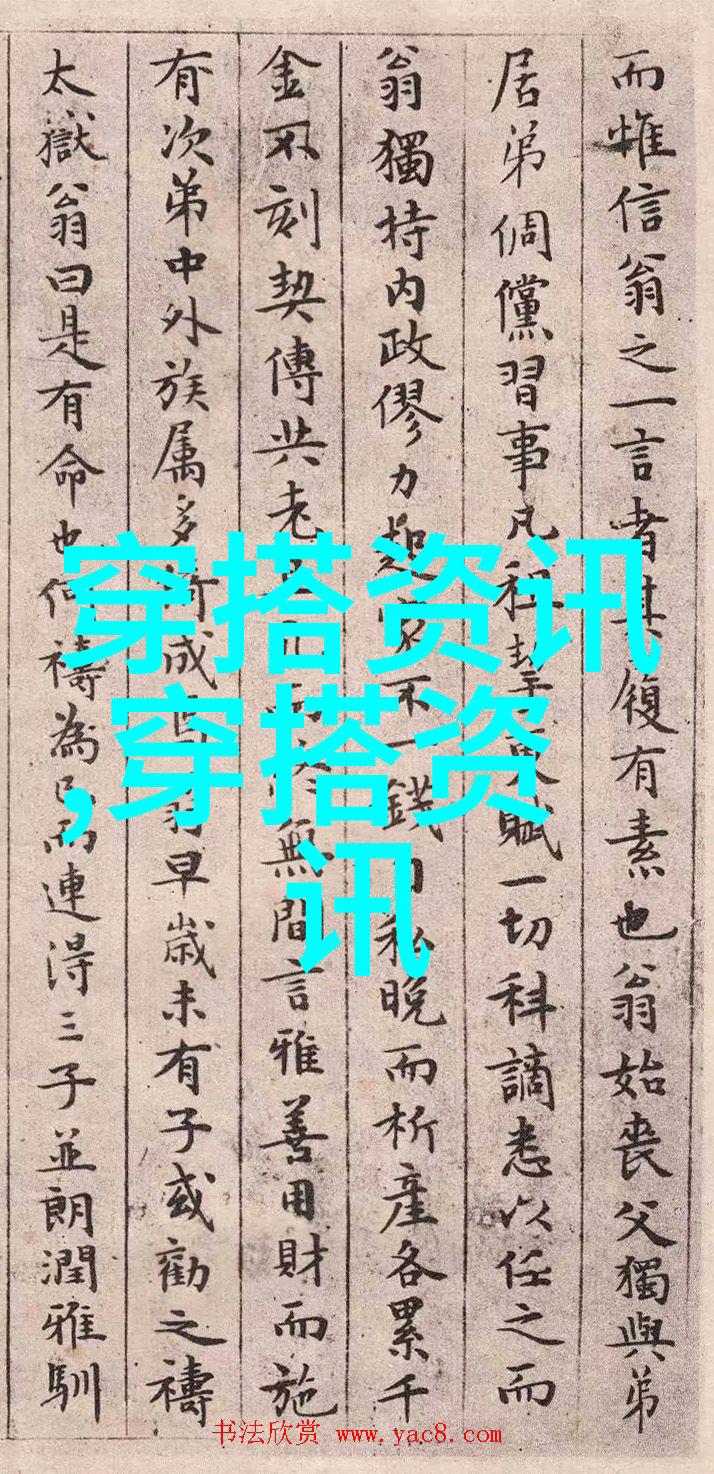 而惟信翁之一言者其履有素也翁始喪父獨與弟
居弟倜儻習事凡租挈更賦一切科謫悉以任之而
翁獨持内政僇力起家不一錢自私晚而析產各累千
金不刻契傳共老無間言雅善用財而施
有次弟中外族属多所成翁早歲未有子或勸之禱
太獄翁曰是有命也何禱為已而連得三子並朗潤雅馴
穿搭资讯
,穿搭资
讯
书法欣赏 www.yac8.com